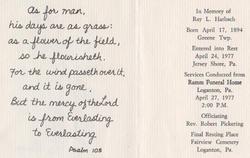 As for man,
his days are as grass:
as a flower of the field,
so he flourisheth.
For the wind passeth over it,
and it is gone,
But the mercy of the Lord
is from Everlasting
to Everlasting
Psalm 103
In Memory of
Ray L. Harbach
Born April 17, 1894
Greene Twp.
Entered into Rest
April 24, 1977
Jersey Shore, Pa.
Services Conducted from
Ramm Funeral Home
Loganton, Pa.
April 27, 1977
2:00 P.M.
Officiating
Rev. Robert Pickering
Final Resting Place
Fairview Cemetery
Loganton, Pa.